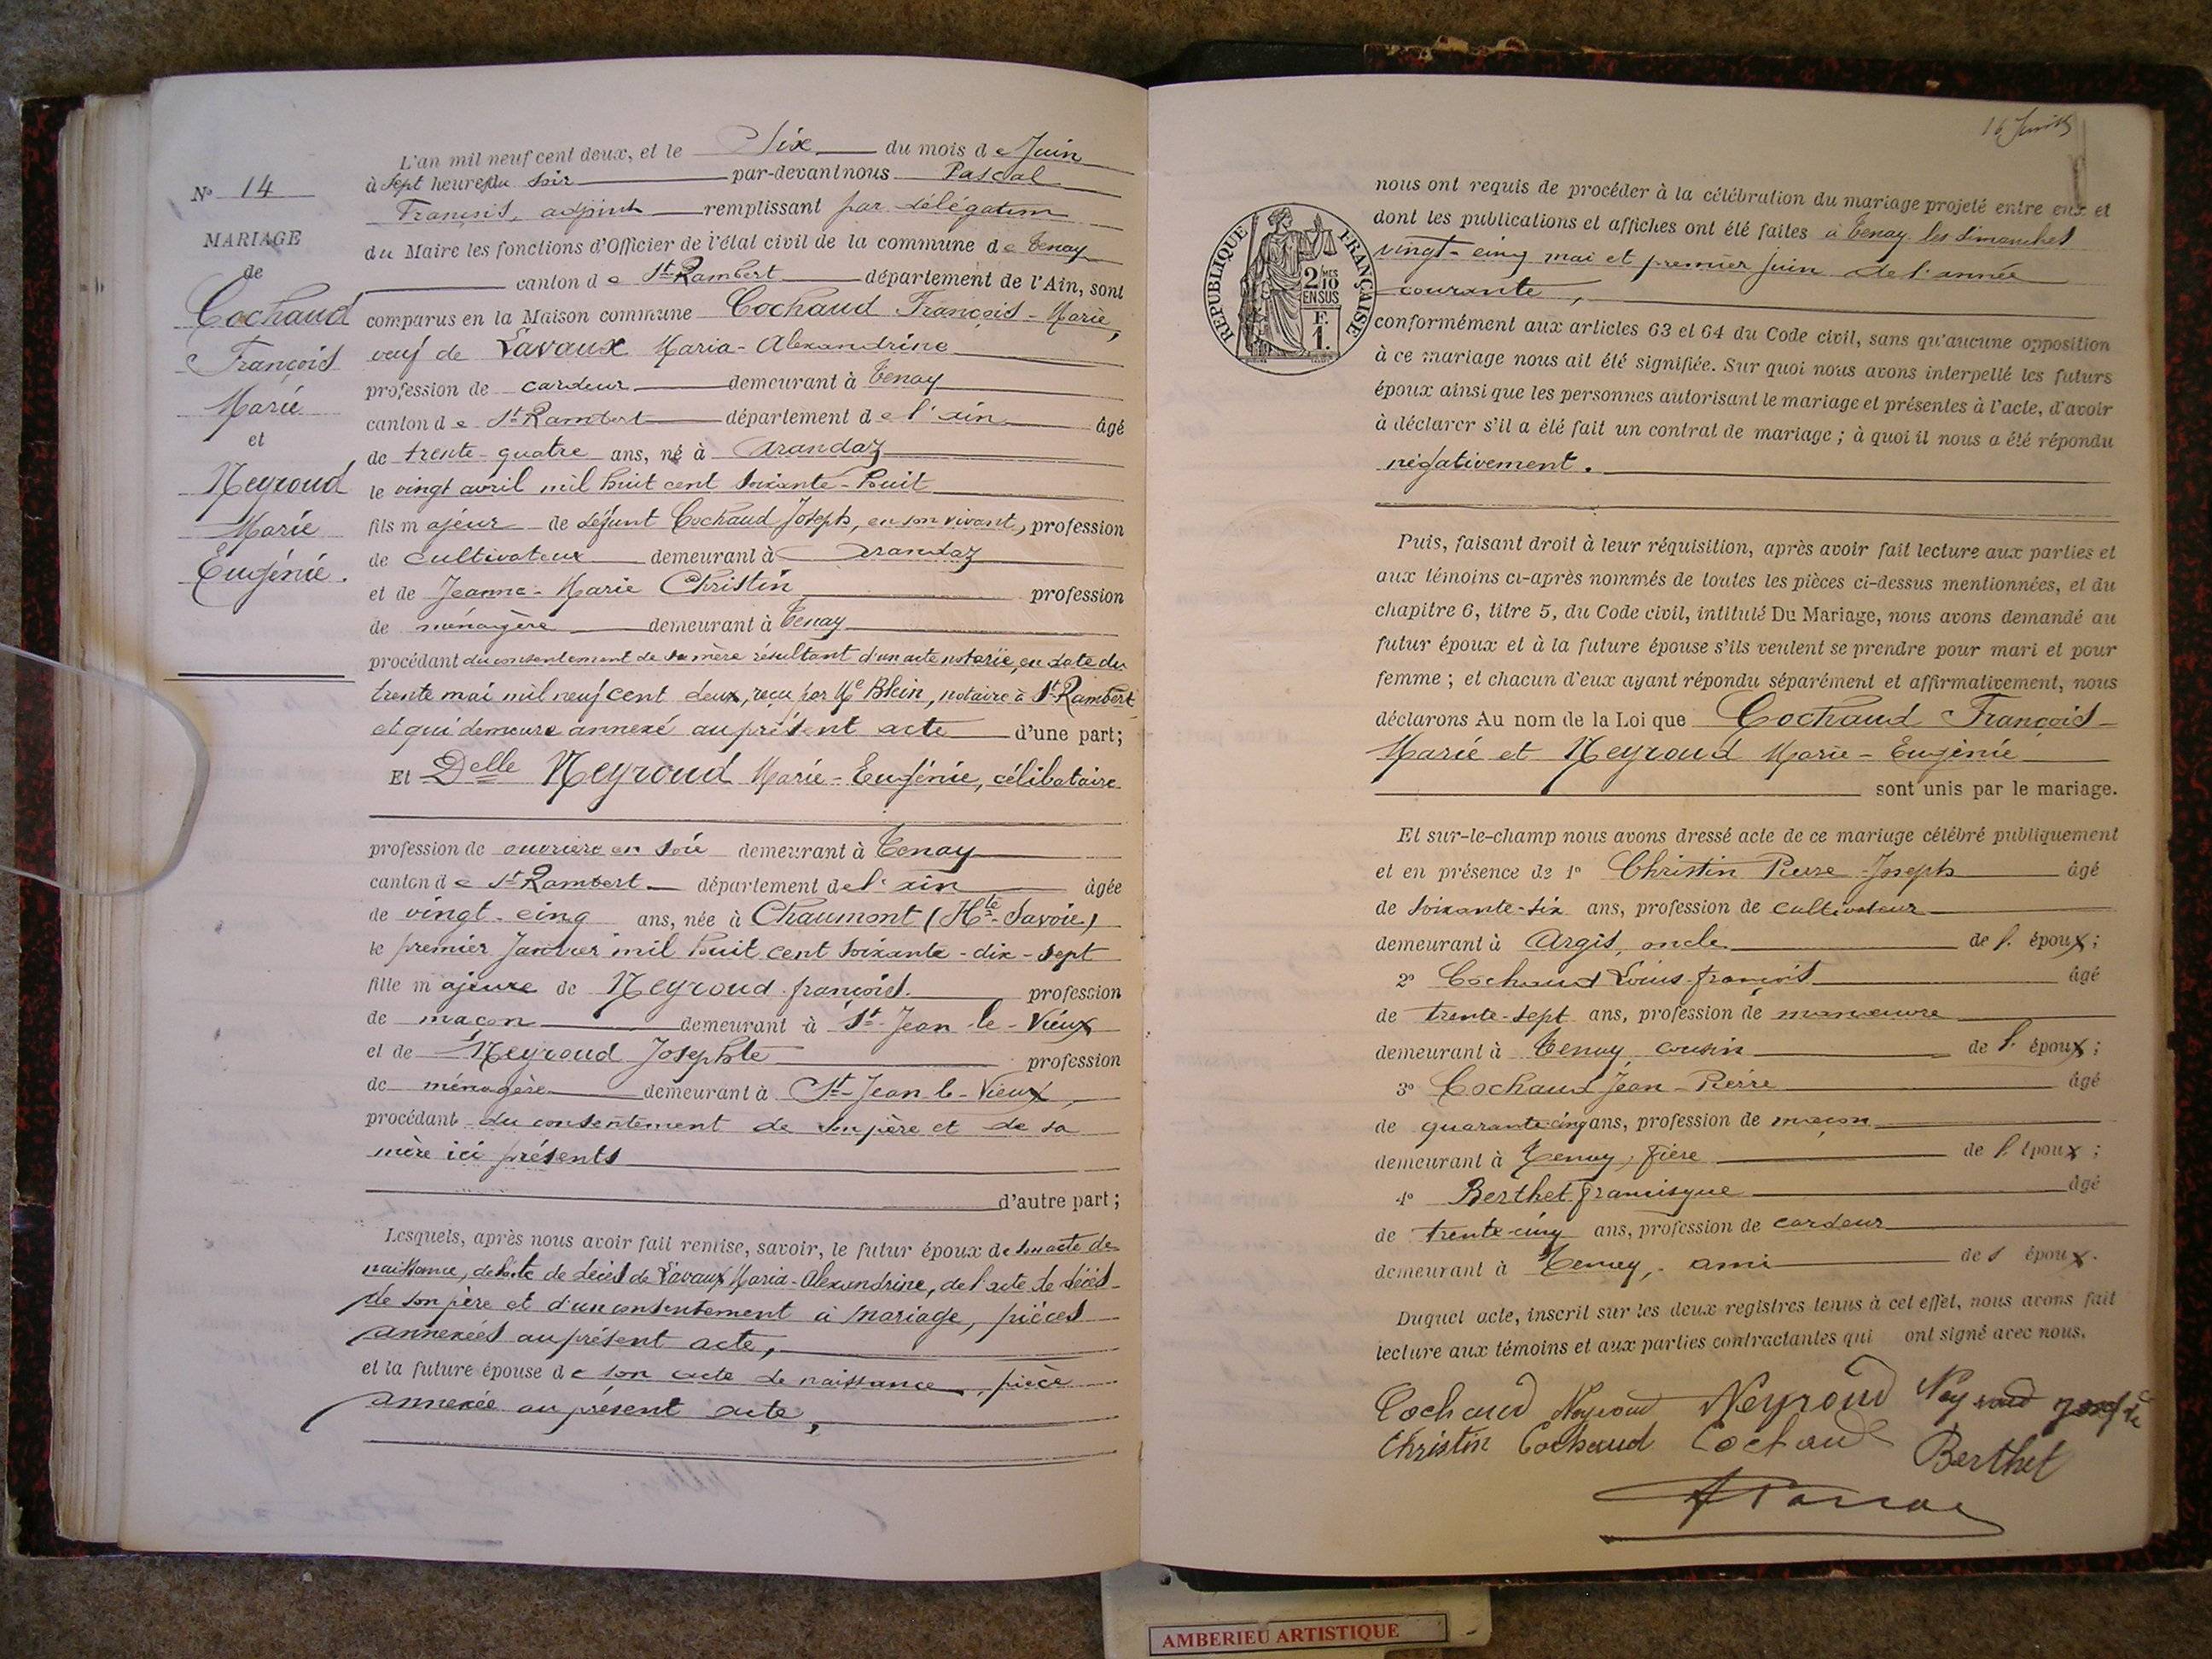 N° 14
MARIAGE
de
Cochaud
François
Marie
et
Neyroud
Marie
Eugénie.
L'an mil neuf cent deux, et le Six du mois de Juin
à sept heures du soir par-devant nous Pascal
François, adjoint remplissant par délégation
du Maire les fonctions d'Officier de l'état civil de la commune de Tenay
canton de St Rambert département de l'Ain, sont
comparus en la Maison commune Cochaud François-Marie,
veuf de Lavaux Maria-Alexandrine
profession de cardeur demeurant à Tenay
canton de St Rambert département de l'ain âgé
de trente-quatre ans, né à Arandaz
le vingt avril mil huit cent soixante-huit
fils majeur de défunt Cochaud Joseph, en son vivant, profession
de cultivateur demeurant à Arandaz
et de Jeanne-Marie Christin profession
de ménagère demeurant à Tenay
procédant du consentement de sa mère résultant d'un acte notarié, en date du
trente mai mil neuf cent deux, reçu par Me Blein, notaire à St Rambert
et qui demeure annexé au présent acte d'une part;
Et Delle Neyroud Marie-Eugénie, célibataire
profession de ouvrière en soie demeurant à Tenay
canton de St Rambert département de l'ain âgée
de vingt-cinq ans, née à Chaumont (Hte-Savoie)
le premier Janvier mil huit cent soixante-dix-sept
fille majeure de Neyroud françois. profession
de maçon demeurant à St-Jean-le-Vieux
et de Neyroud Josephte profession
de ménagère demeurant à St-Jean-le-Vieux,
procédant du consentement de son père et de sa
mère ici présents
d'autre part;
Lesquels, après nous avoir fait remise, savoir, le futur époux de son acte de
naissance, de l'acte de décès de Lavaux Maria-Alexandrine, de l'acte de décès
de son père et d'un consentement à mariage, pièces
annexées au présent acte,
et la future épouse de son acte de naissance, pièce
annexée au présent acte,
16 Juin
REPUBLIQUE FRANÇAISE
2 MES
10
EN SUS
F.
1.
nous ont requis de procéder à la célébration du mariage projeté entre eux et
dont les publications et affiches ont été faites à Tenay les dimanches
vingt-cinq mai et premier juin de l'année
courante,
conformément aux articles 63 et 64 du Code civil, sans qu'aucune opposition
à ce mariage nous ait été signifiée. Sur quoi nous avons interpellé les futurs
époux ainsi que les personnes autorisant le mariage et présentes à l'acte, d'avoir
à déclarer s'il a été fait un contrat de mariage; à quoi il nous a été répondu
négativement.
Puis, faisant droit à leur réquisition, après avoir fait lecture aux parties et
aux témoins ci-après nommés de toutes les pièces ci-dessus mentionnées, et du
chapitre 6, titre 5, du Code civil, intitulé Du Mariage, nous avons demandé au
futur époux et à la future épouse s'ils veulent se prendre pour mari et pour
femme; et chacun d'eux ayant répondu séparément et affirmativement, nous
déclarons Au nom de la Loi que Cochaud François-
Marie et Neyroud Marie-Eugénie
sont unis par le mariage.
Et sur-le-champ nous avons dressé acte de ce mariage célébré publiquement
et en présence de 1° Christin Pierre-Joseph âgé
de soixante-six ans, profession de cultivateur
demeurant à Argis, oncle de l'époux;
2° Cochaud Louis-françois âgé
de trente-sept ans, profession de manœuvre
demeurant à Tenay, cousin de l'époux;
3° Cochaud Jean-Pierre âgé
de quarante-cinq ans, profession de maçon
demeurant à Tenay, frère de l'époux;
4° Berthet francisque âgé
de trente-cinq ans, profession de cardeur
demeurant à Tenay, ami de l'époux.
Duquel acte, inscrit sur les deux registres tenus à cet effet, nous avons fait
lecture aux témoins et aux parties contractantes qui ont signé avec nous.
Cochaud Neyroud Neyroud Neyroud
Christin Cochaud Cochaud Berthet
AMBERIEU ARTISTIQUE